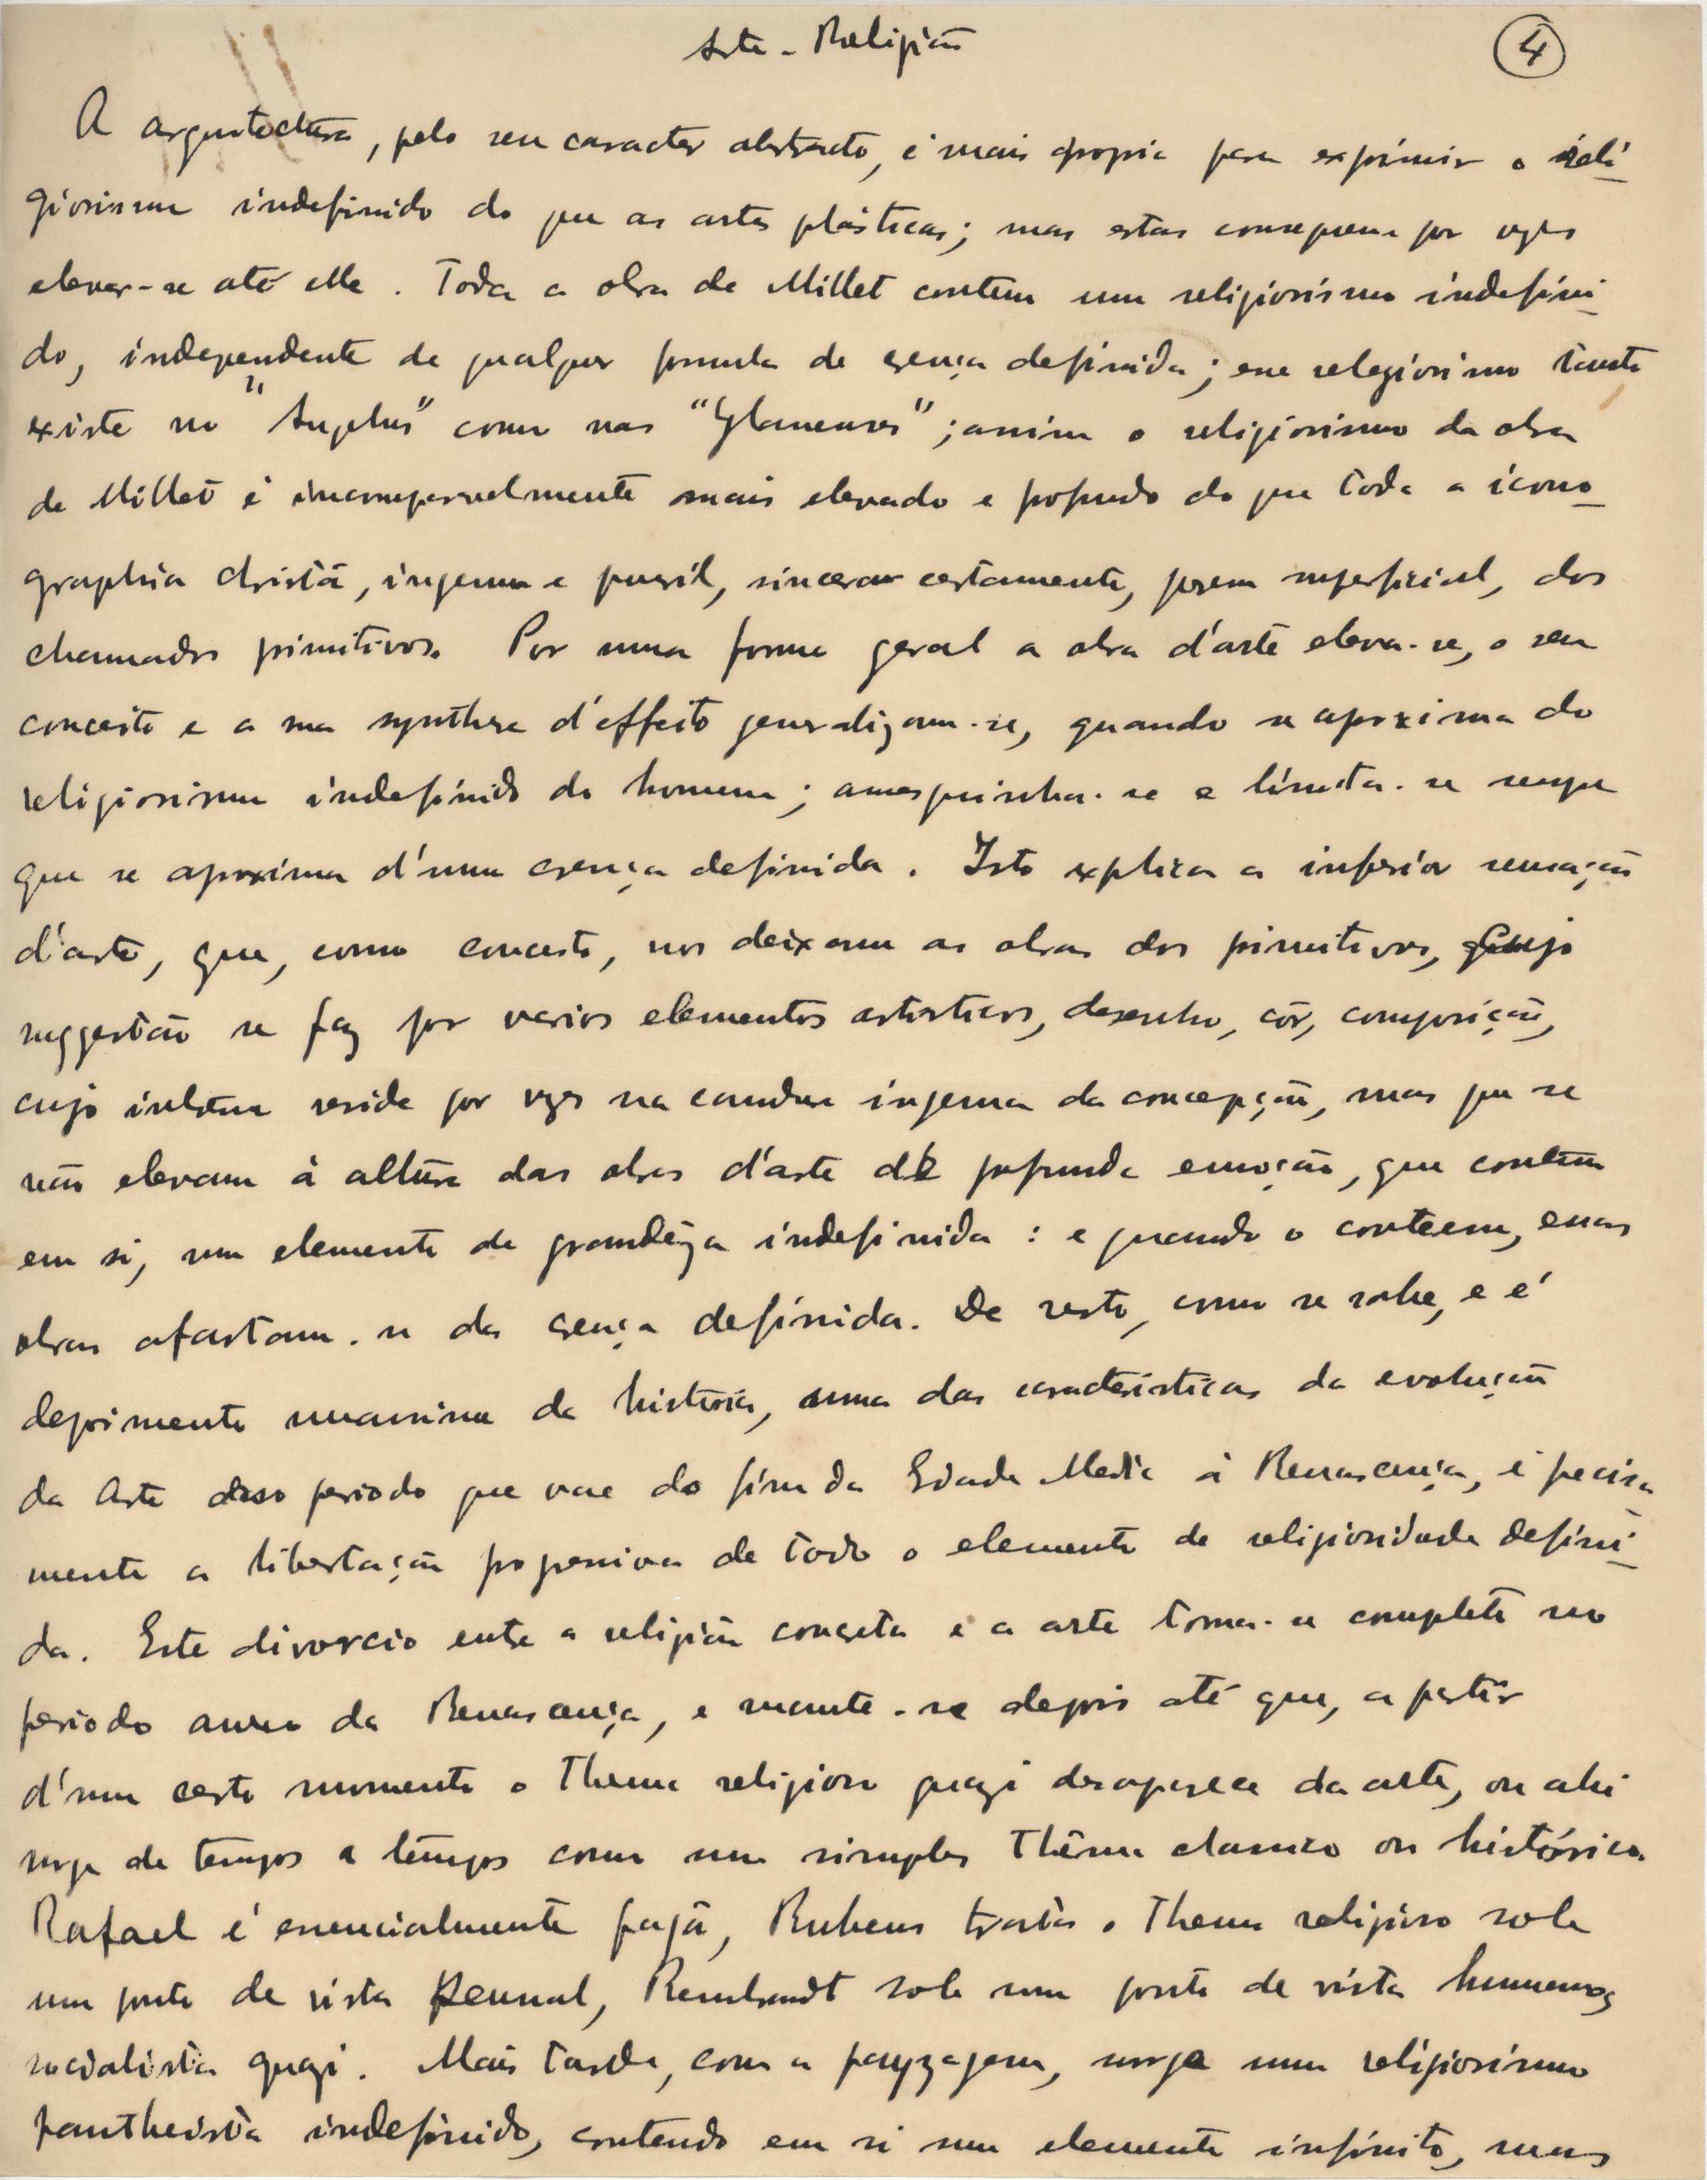 Arte - Religião
4
A arquitectura, pelo seu caracter abstracto, é mais propria para exprimir o reli-
giosismo indefinido do que as artes plásticas; mas estas conseguem por vezes
elevar-se até elle. Toda a obra de Millet contem um religiosismo indefini-
do, independente de qualquer formula de crença definida; esse religiosismo tanto
existe no "Angelus" como nas "Glaneuses"; assim o religiosismo da obra
de Millet é incomparavelmente mais elevado e profundo do que toda a icono-
graphia christã, ingenua e pueril, sincera certamente, porem superficial, dos
chamados primitivos. Por uma forma geral a obra d'arte eleva-se, o seu
conceito e a sua synthese d'effeito generalizam-se, quando se aproxima do
religiosismo indefinido do homem; amesquinha-se e limita-se sempre
que se aproxima d'uma crença definida. Isto explica a inferior sensação
d'arte, que, como conceito, nos deixam as obras dos primitivos, cujo
suggestão se faz por varios elementos artisticos, desenho, côr, composição,
cujo interesse reside por vezes na candura ingenua da concepção, mas que se
não elevam á altura das obras d'arte de profunda emoção, que contem
em si, um elemento de grandêza indefinida: e quando o conteem, essas
obras afastam-se da crença definida. De resto, como se sabe, e é
deprimente da história, uma das caracteristicas da evolução
da Arte desse periodo que vae do fim da Edade Media á Renascença, é precisa-
mente a libertação progressiva de todo o elemento de religiosidade defini-
da. Este divorcio entre a religião concreta e a arte torna-se completo no
periodo aureo da Renascença, e mante-se depois até que, a partir
d'um certo momento o thema religioso quazi desaparece da arte, ou ahi
surge de tempos a tempos como um simples thêma classico ou histórico.
Rafael é essencialmente pagã, Rubens trata o thema religioso sob
um ponto de vista sensual, Rembrandt sob um ponto de vista humano,
socialista quazi. Mais tarde, com a payzagem, surge um religiosismo
pantheista indefinido, contendo em si um elemento infinito, mas